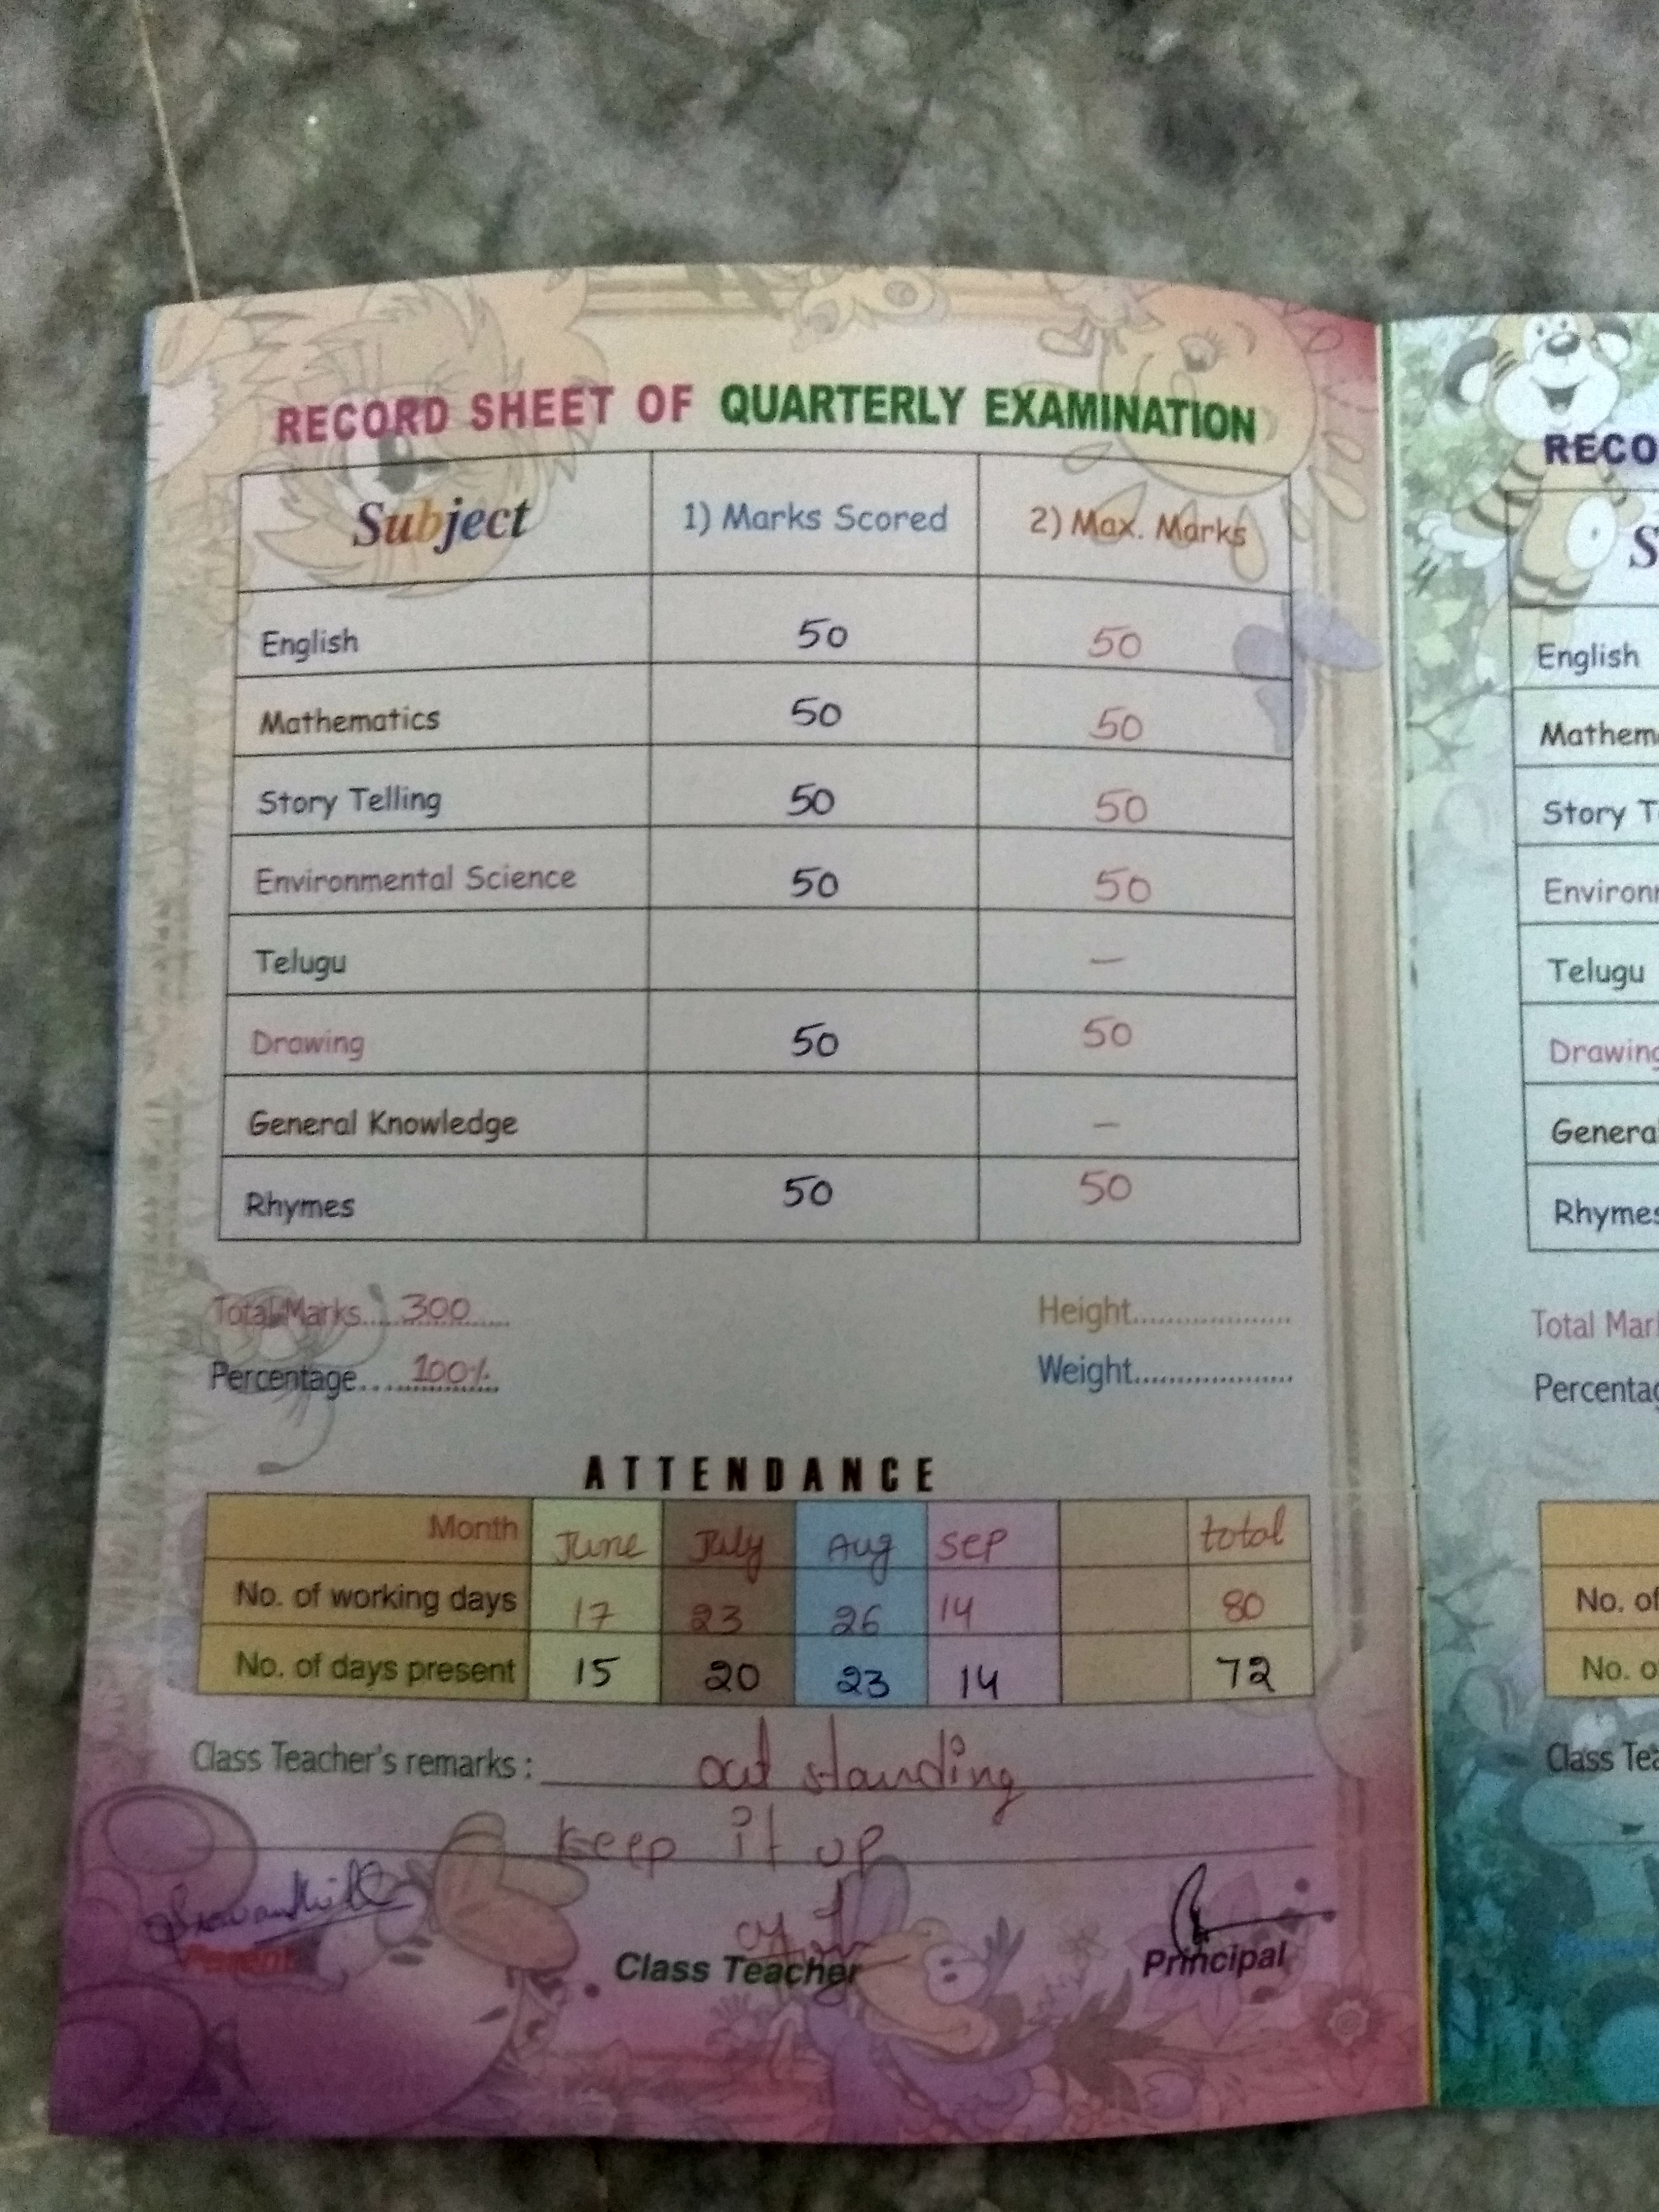 RECORD SHEET OF QUARTERLY EXAMINATION
Subject 1) Marks Scored 2) Max. Marks
English 50 50
Mathematics 50 50
Story Telling 50 50
Environmental Science 50 50
Telugu —
Drawing 50 50
General Knowledge —
Rhymes 50 50
Total Marks....300......
Height....................
Percentage....100%.
Weight....................
ATTENDANCE
Month June July Aug Sep total
No. of working days 17 23 26 14 80
No. of days present 15 20 23 14 72
Class Teacher's remarks : out standing
keep it up
Parent Class Teacher Principal
RECO
S
English
Mathem
Story T
Environ
Telugu
Drawing
General
Rhymes
Total Mar
Percentag
No. of
No. o
Class Tea